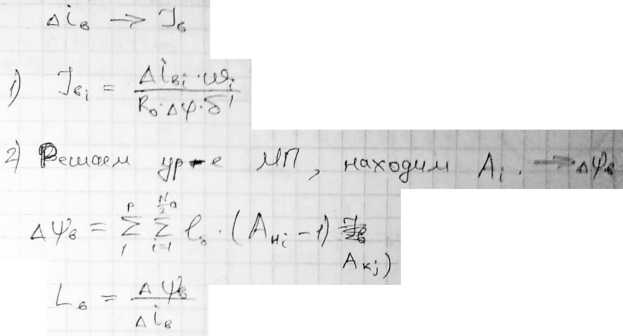 Δi_в → J_в
1) J_вi = Δi_вi · ω_i / R_0 · Δφ · δ'
2) Решаем ур-е МП, находим A_i. → Δψ_в
Δψ_в = Σ_1^p Σ_i=1 l_0 · (A_нi - 1)
A_кj)
L_в = Δψ_в / Δi_в